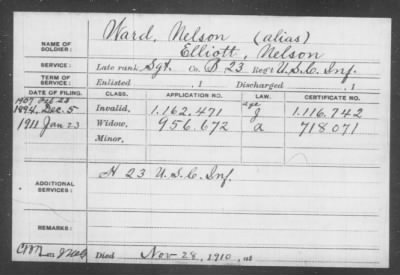 Ward, Nelson (alias)
NAME OF SOLDIER: Elliott, Nelson
SERVICE: Late rank, Sgt. Co. B 23 Reg't U.S.C. Inf.
TERM OF SERVICE: Enlisted , 1 Discharged , 1
DATE OF FILING. CLASS. APPLICATION NO. LAW. CERTIFICATE NO.
1907 Feb 28 age
1894, Dec. 5 Invalid, 1.162.471 J 1.116.742
1911 Jan 23 Widow, 956.672 a 718.071
Minor,
ADDITIONAL SERVICES: H 23 U.S.C. Inf.
REMARKS:
Died Nov 28, 1910, at